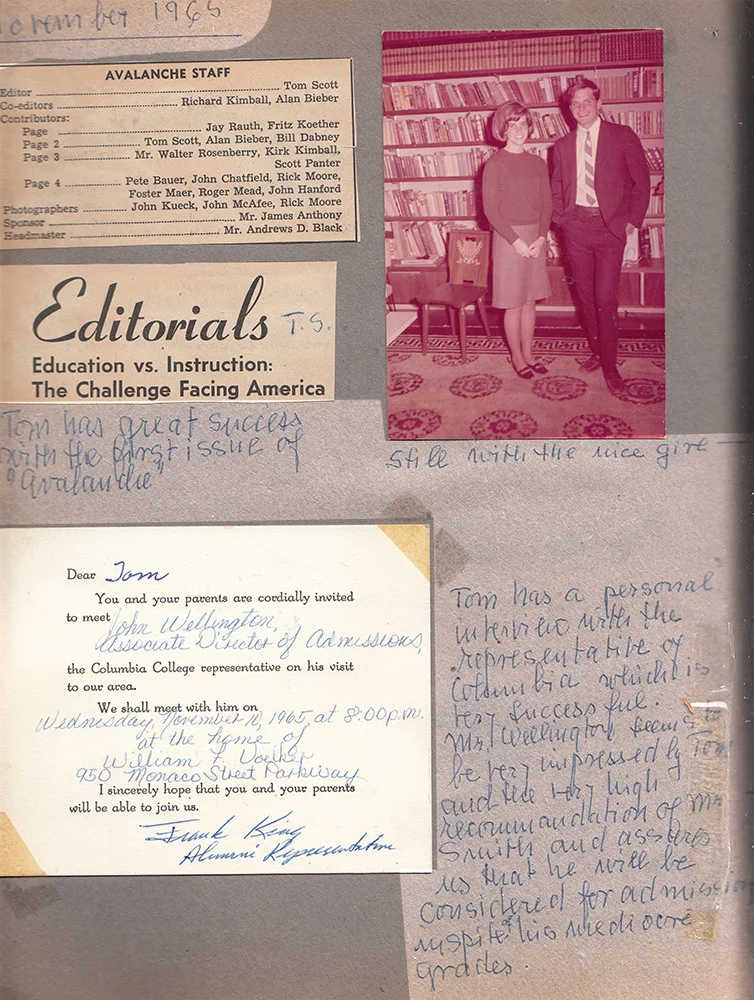 november 1965
AVALANCHE STAFF
Editor ........ Tom Scott
Co-editors ........ Richard Kimball, Alan Bieber
Contributors:
Page ........ Jay Rauth, Fritz Koether
Page 2 ........ Tom Scott, Alan Bieber, Bill Dabney
Page 3 ........ Mr. Walter Rosenberry, Kirk Kimball,
Scott Panter
Page 4 ........ Pete Bauer, John Chatfield, Rick Moore,
Foster Maer, Roger Mead, John Hanford
Photographers ........ John Kueck, John McAfee, Rick Moore
Sponsor ........ Mr. James Anthony
Headmaster ........ Mr. Andrews D. Black
Editorials T.S.
Education vs. Instruction:
The Challenge Facing America
Tom has great success
with the first issue of
"Avalanche"
Still with the nice girl
Dear Tom
You and your parents are cordially invited
to meet John Wellington,
Associate Director of Admissions,
the Columbia College representative on his visit
to our area.
We shall meet with him on
Wednesday, November 10, 1965, at 8:00 p.m.
at the home of
William F. Voelker
950 Monaco Street Parkway
I sincerely hope that you and your parents
will be able to join us.
Frank King
Alumni Representative
Tom has a personal
interview with the
representative of
Columbia which is
very successful.
Mr. Wellington seems to
be very impressed by Tom
and the very high
recommandation of Mr
Smith and assures
us that he will be
considered for admission
inspite of his mediocre
grades